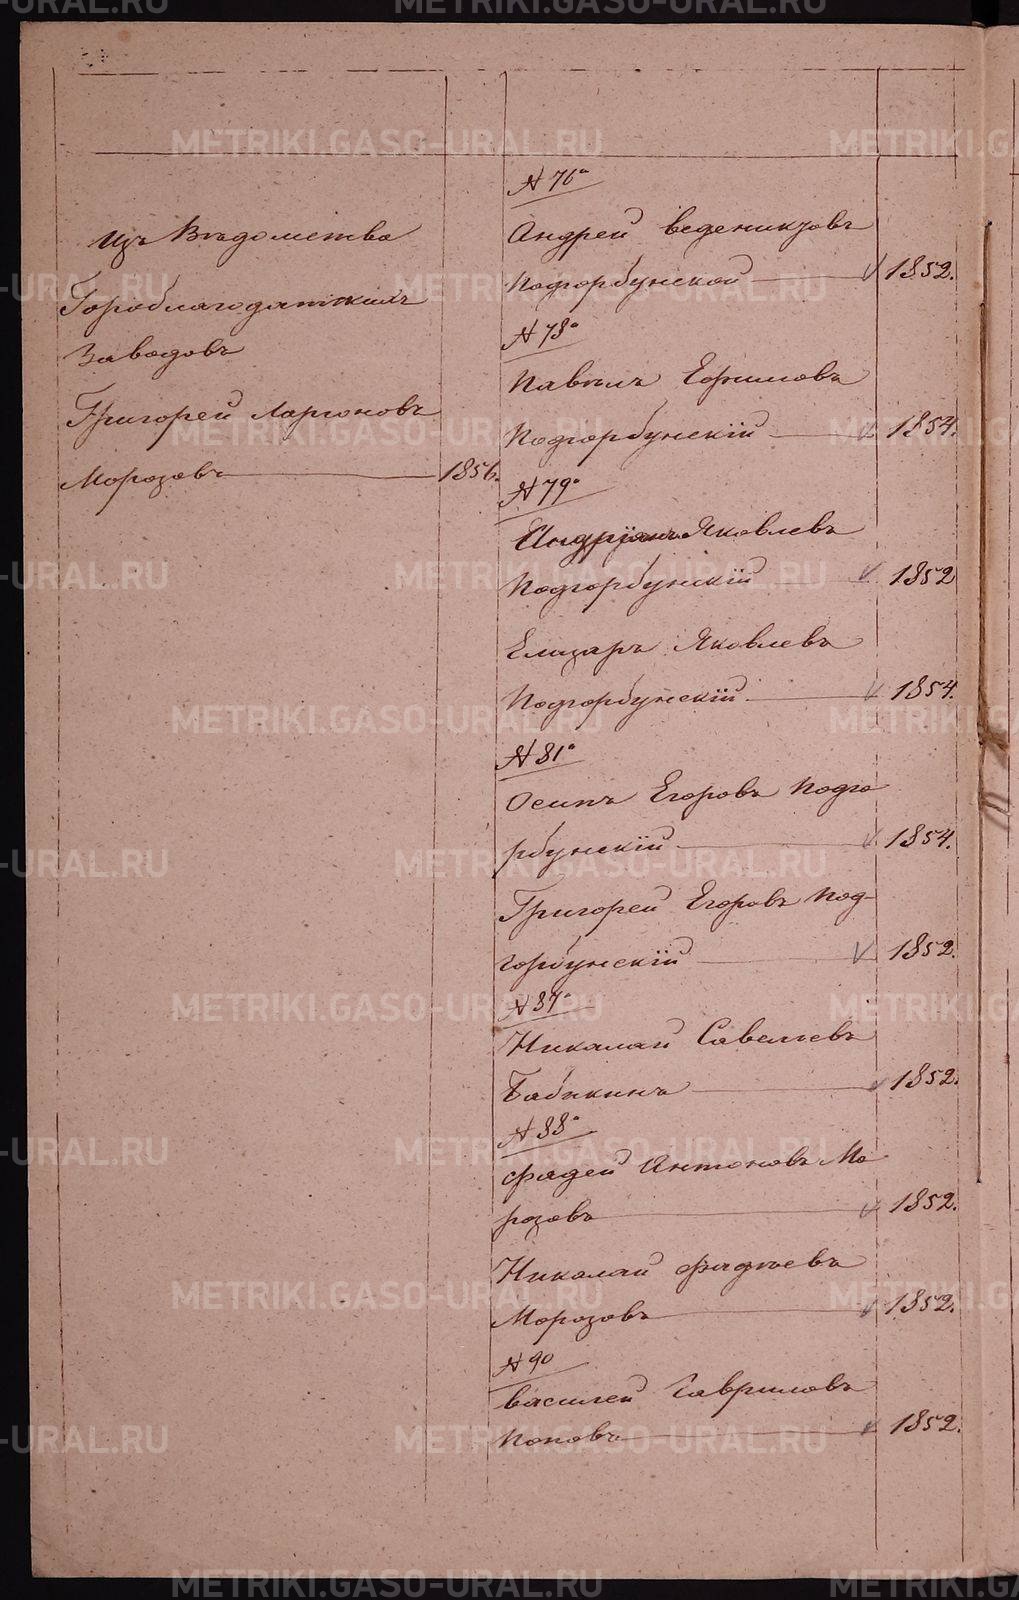 Изъ Вѣдомства
Гороблагодатскихъ
Заводовъ
Григорей Ларіоновъ
Морозовъ 1856.
N 76º
Андрей Веденихтовъ
Подгорбунской V 1852.
N 78º
Павелъ Ефимовъ
Подгорбунскій V 1854.
N 79º
Андріянъ Яковлевъ
Подгорбунскій V 1852
Елизаръ Яковлевъ
Подгорбунскій V 1854.
N 81º
Осипъ Егоровъ Подго
рбунскій V 1854.
Григорей Егоровъ Под-
горбунскій V 1852.
N 87º
Николай Савельевъ
Бабкинъ V 1852.
N 88º
Фадей Антоновъ Мо
розовъ V 1852.
Николай Фадѣевъ
Морозовъ V 1852.
N 90
Василей Гавриловъ
Поповъ V 1852.
METRIKI.GASO-URAL.RU